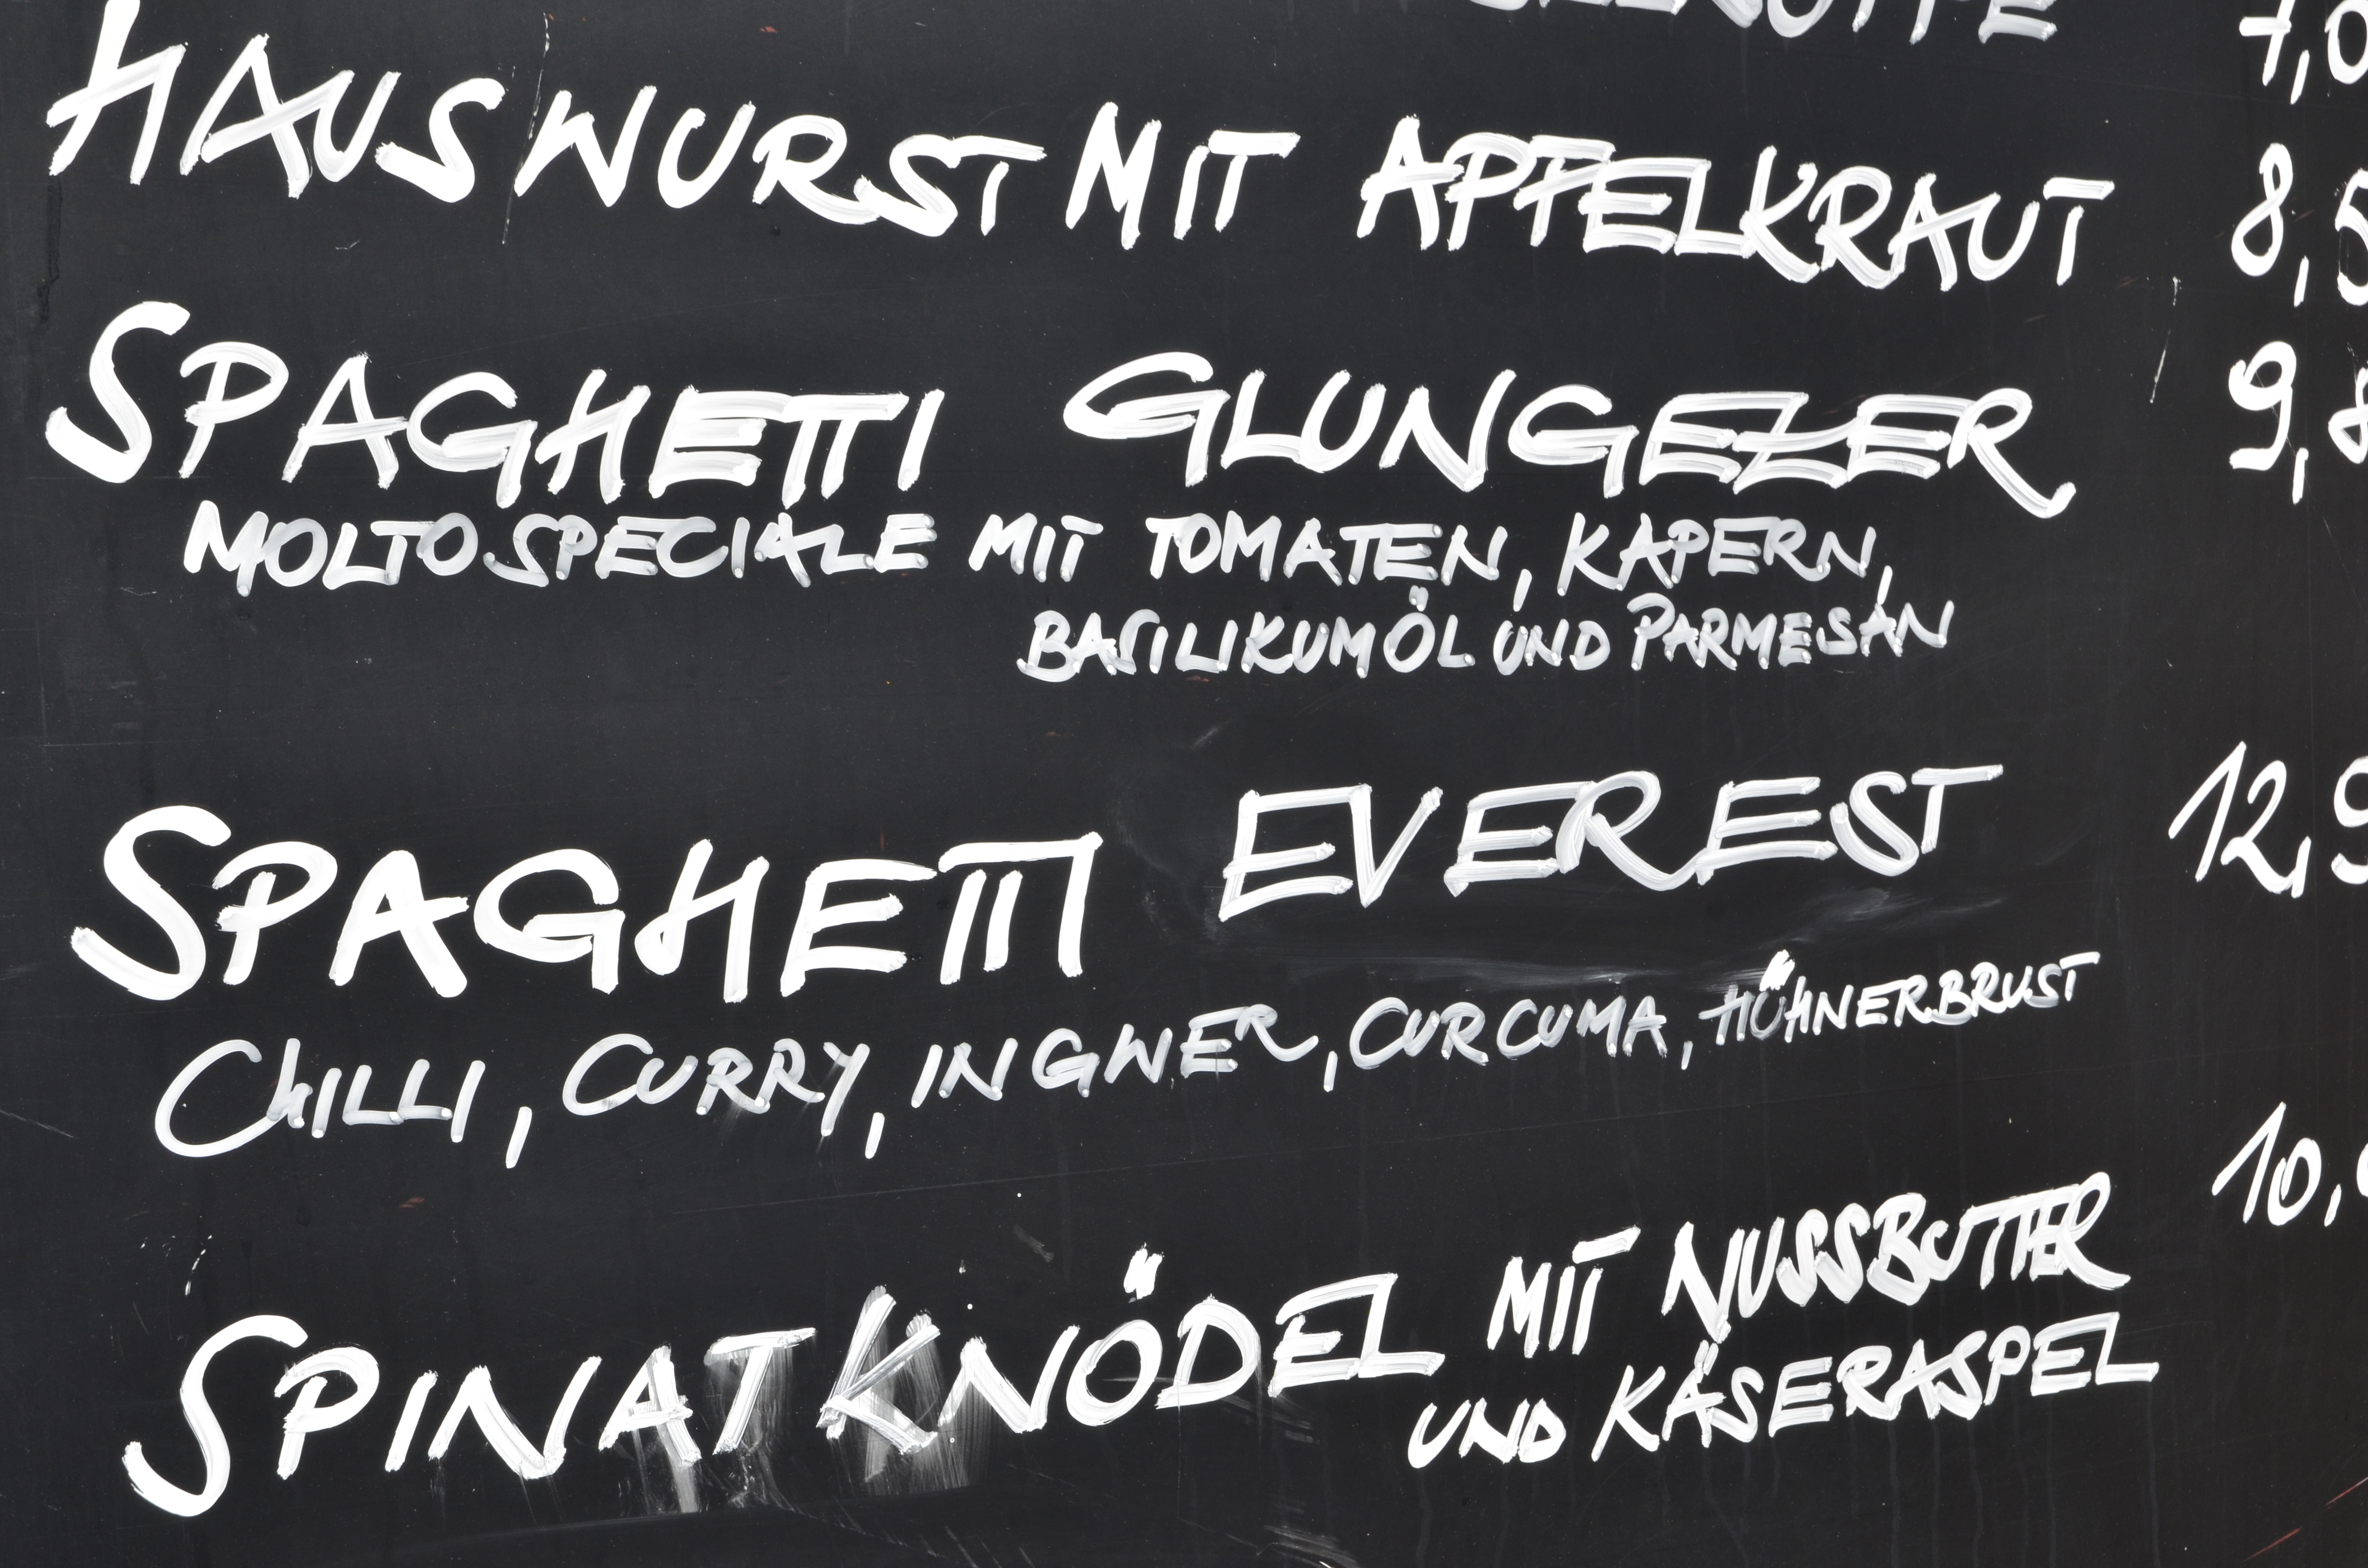 HAUSWURST MIT APFELKRAUT 8,5
SPAGHETTI GLUNGEZER 9,8
MOLTO SPECIALE MIT TOMATEN, KAPERN,
BASILIKUMÖL UND PARMESAN
SPAGHETTI EVEREST 12,9
CHILLI, CURRY, INGWER, CURCUMA, HÜHNERBRUST
10,
SPINATKNÖDEL MIT NUSSBUTTER
UND KÄSERASPEL